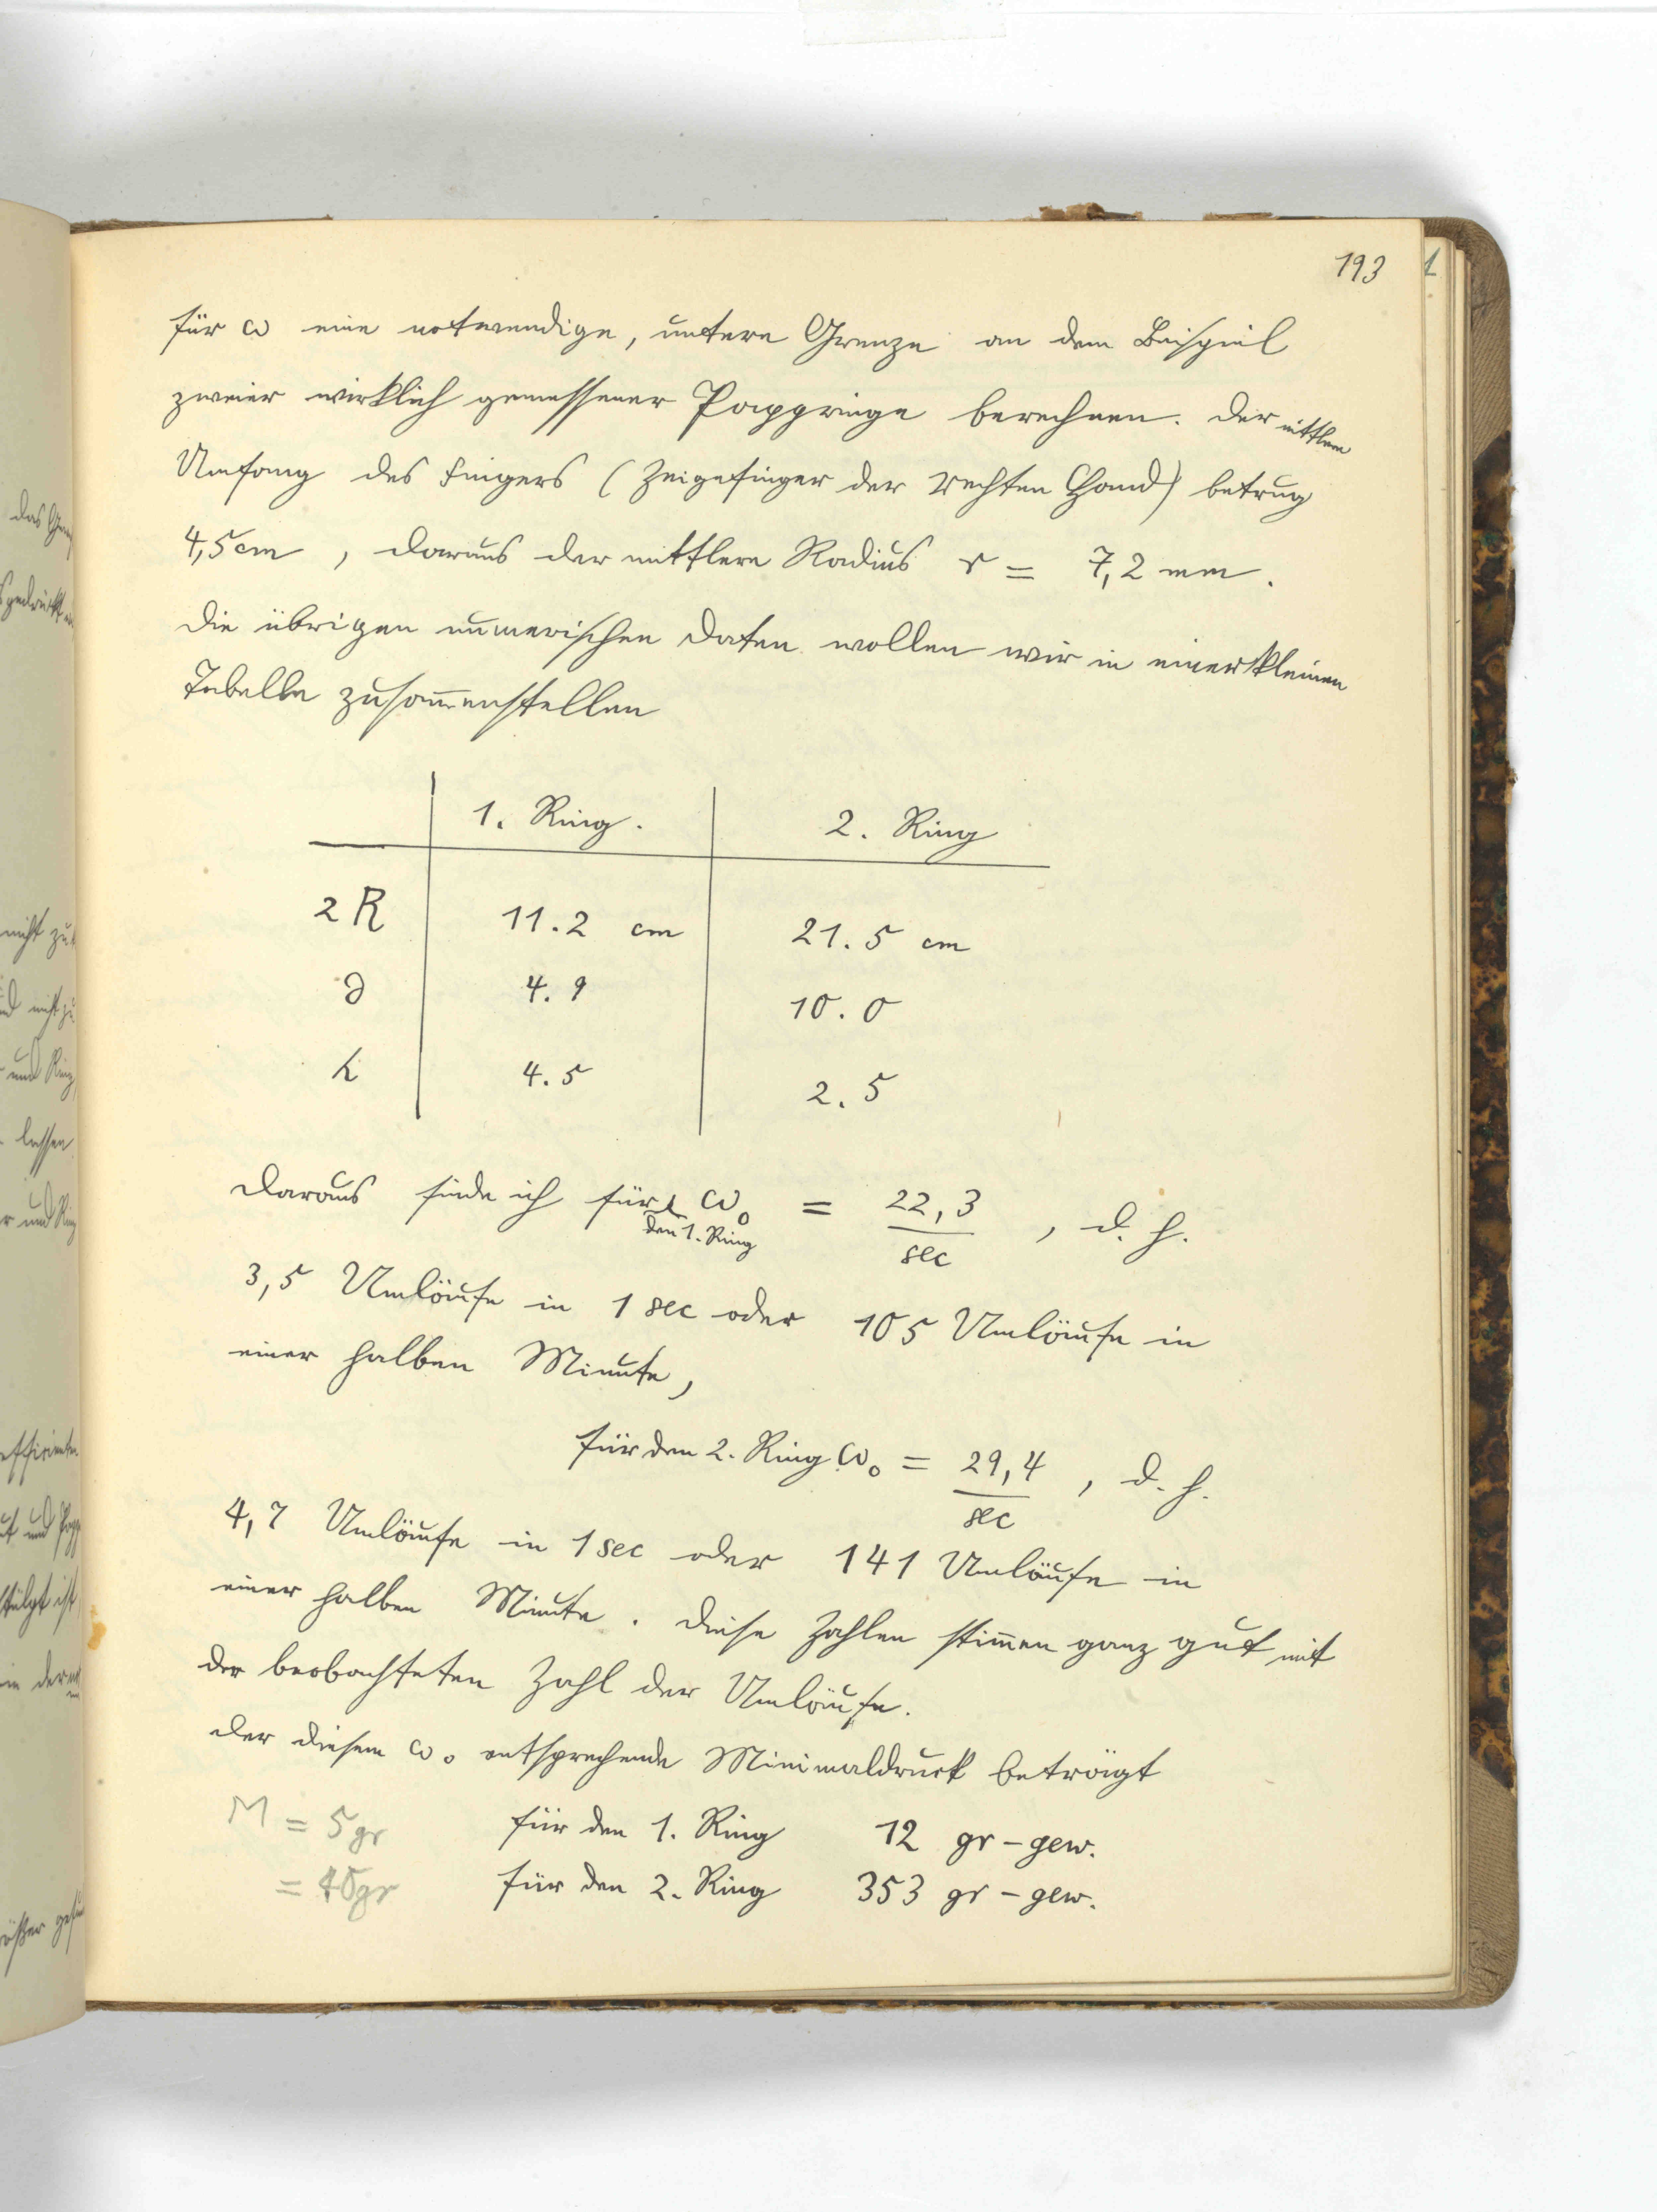 193
für ω eine notwendige, untere Grenze an dem Beispiel
zweier wirklich gemessener Pappringe berechnen. Der mittlere
Umfang des Fingers (Zeigefinger der rechten Hand) betrug
4,5 cm, daraus der mittlere Radius r = 7,2 mm.
Die übrigen numerischen Daten wollen wir in einer kleinen
Tabelle zusam̅enstellen
1. Ring. 2. Ring
2R 11.2 cm 21.5 cm
d 4.9 10.0
h 4.5 2.5
Daraus finde ich für den 1. Ring ω₀ = 22,3/sec, d. h.
3,5 Umläufe in 1 sec oder 105 Umläufe in
einer halben Minute,
für den 2. Ring ω₀ = 29,4/sec, d. h.
4,7 Umläufe in 1 sec oder 141 Umläufe in
einer halben Minute. Diese Zahlen stim̅en ganz gut mit
der beobachteten Zahl der Umläufe.
Der diesem ω₀ entsprechende Minimaldruck beträgt
M = 5 gr für den 1. Ring 12 gr-gew.
= 40 gr für den 2. Ring 353 gr-gew.